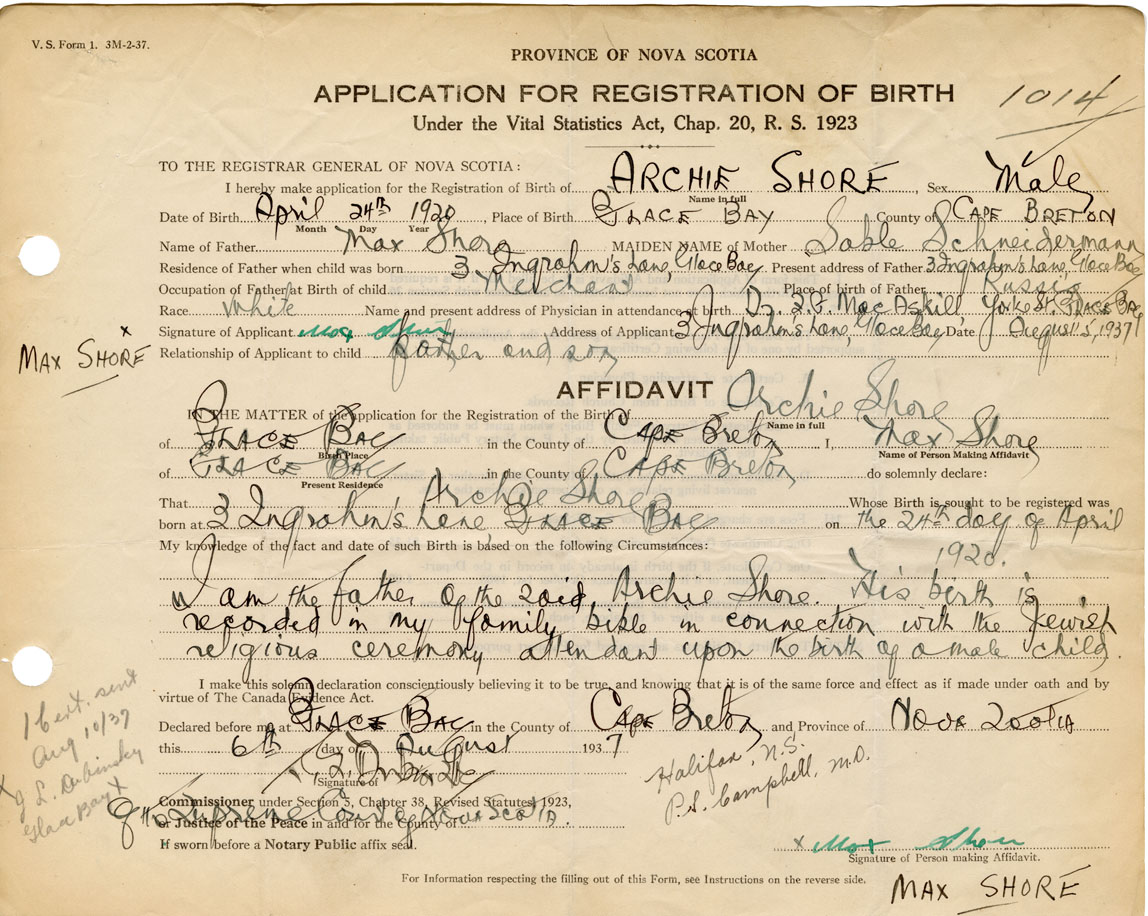 V. S. Form 1. 3M-2-37.
PROVINCE OF NOVA SCOTIA
APPLICATION FOR REGISTRATION OF BIRTH
1014
Under the Vital Statistics Act, Chap. 20, R. S. 1923
TO THE REGISTRAR GENERAL OF NOVA SCOTIA:
I hereby make application for the Registration of Birth of ARCHIE SHORE, Sex Male
Name in full
Date of Birth April 24th 1920, Place of Birth GLACE BAY County of CAPE BRETON
Month Day Year
Name of Father Max Shore MAIDEN NAME of Mother Sable Schneidermann
Residence of Father when child was born 3 Ingrahm's Lane, Glace Bay. Present address of Father 3 Ingrahm's Lane, Glace Bay
Occupation of Father at Birth of child Merchant Place of birth of Father Russia
Race White Name and present address of Physician in attendance at birth Dr. MacAskill, York St. GLACE BAY
x Signature of Applicant Max Shore, Address of Applicant 3 Ingrahm's Lane, Glace Bay Date August 5, 1937
MAX SHORE
Relationship of Applicant to child father and son
AFFIDAVIT
IN THE MATTER of the application for the Registration of the Birth of Archie Shore
Name in full
of GLACE BAY in the County of CAPE Breton, I, Max Shore
Birth Place Name of Person Making Affidavit
of GLACE BAY in the County of CAPE Breton do solemnly declare:
Present Residence
That Archie Shore Whose Birth is sought to be registered was
born at 3 Ingrahm's Lane GLACE BAY on the 24th day of April
1920.
My knowledge of the fact and date of such Birth is based on the following Circumstances:
I am the father of the said, Archie Shore. His birth is
recorded in my family bible in connection with the Jewish
religious ceremony attendant upon the birth of a male child.
I make this solemn declaration conscientiously believing it to be true, and knowing that it is of the same force and effect as if made under oath and by
virtue of The Canada Evidence Act.
Declared before me at GLACE BAY in the County of CAPE Breton, and Province of NOVA SCOTIA
this 6th day of August 1937
Signature of
Halifax, N.S.
P.S. Campbell, M.D.
1 Cert. sent
Aug 10/37
x J L. Dubinsky
Glace Bay x
Commissioner under Section 5, Chapter 38, Revised Statutes 1923,
of the Supreme Court of Nova Scotia.
or Justice of the Peace in and for the County of
If sworn before a Notary Public affix seal.
x Max Shore
Signature of Person making Affidavit.
For Information respecting the filling out of this Form, see Instructions on the reverse side.
MAX SHORE